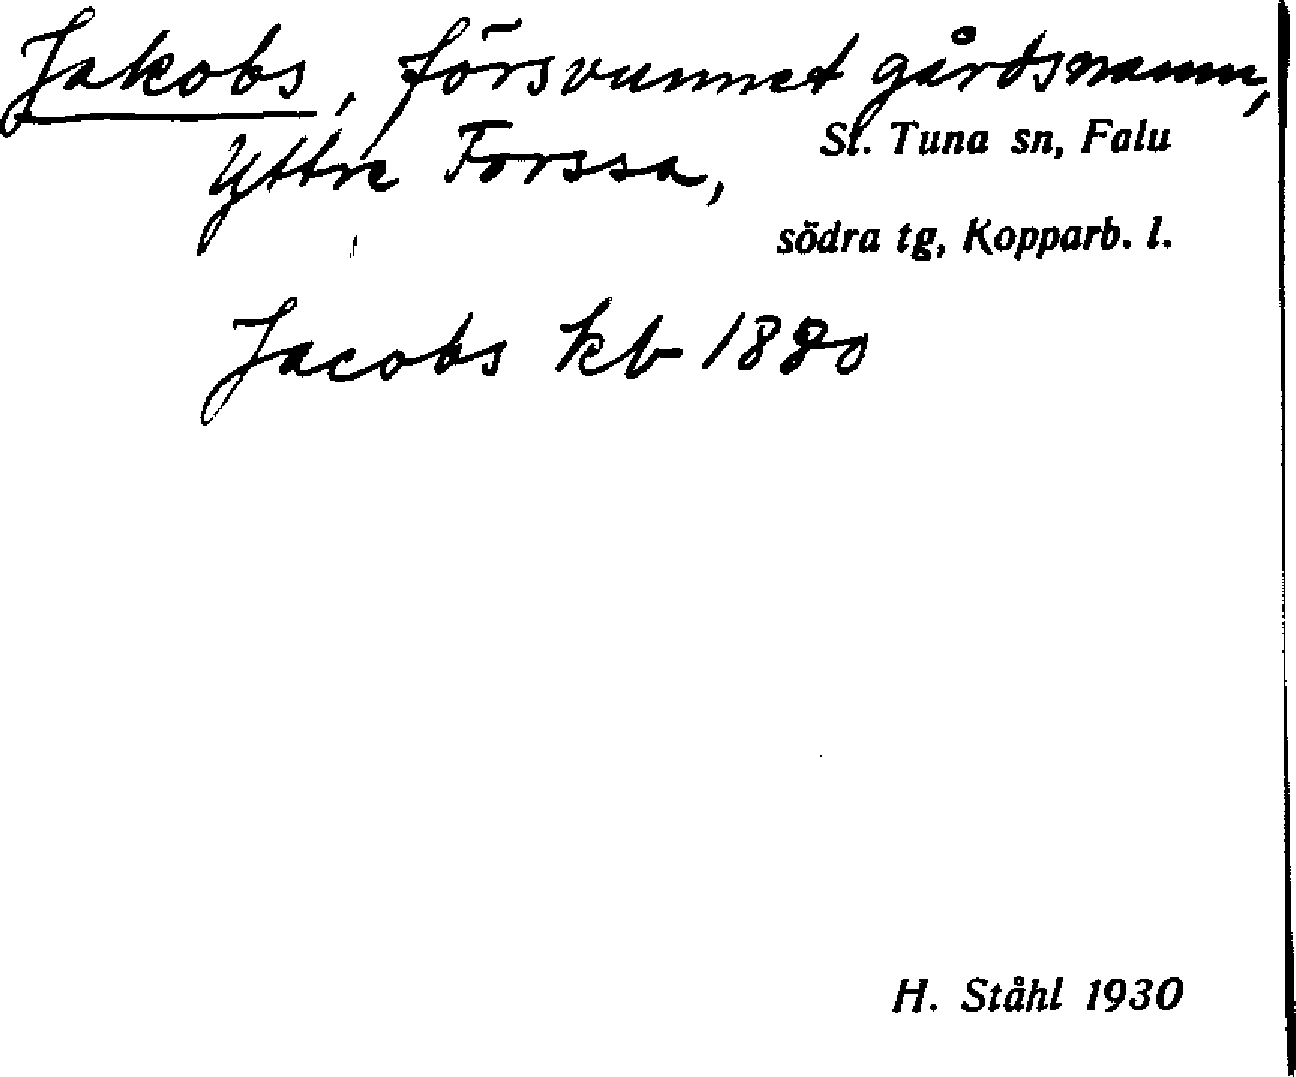 Jakobs, försvunnet gårdsnamn,
Yttre Forssa, St. Tuna sn, Falu
södra tg, Kopparb. l.
Jacobs kb 1820
H. Ståhl 1930